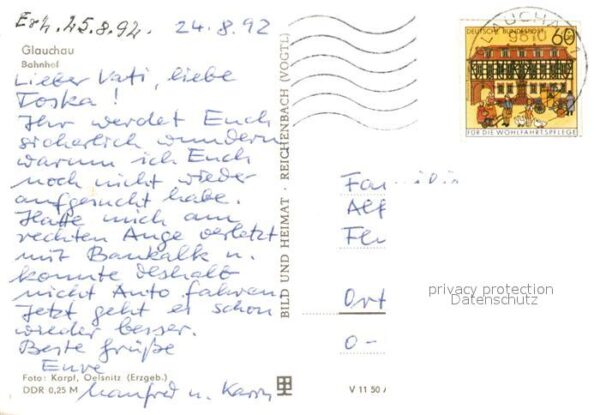 Erh. 25.8.92. 24.8.92
Glauchau
Bahnhof
Lieber Vati, liebe
Toska!
Ihr werdet Euch
sicherlich wundern
warum ich Euch
noch nicht wieder
aufgesucht habe.
Hatte mich am
rechten Auge verletzt
mit Baukalk u.
konnte deshalb
nicht Auto fahren
Jetzt geht es schon
wieder besser.
Beste Grüße
Eure
Manfred u.
Foto: Karpf, Oelsnitz (Erzgeb.)
DDR 0,25 M
BILD UND HEIMAT · REICHENBACH (VOGTL)
V 11 50
GLAUCHAU
9610
DEUTSCHE BUNDESPOST
60
FÜR DIE WOHLFAHRTSPFLEGE
Fam
Alf
Ort
O-
privacy protection
Datenschutz